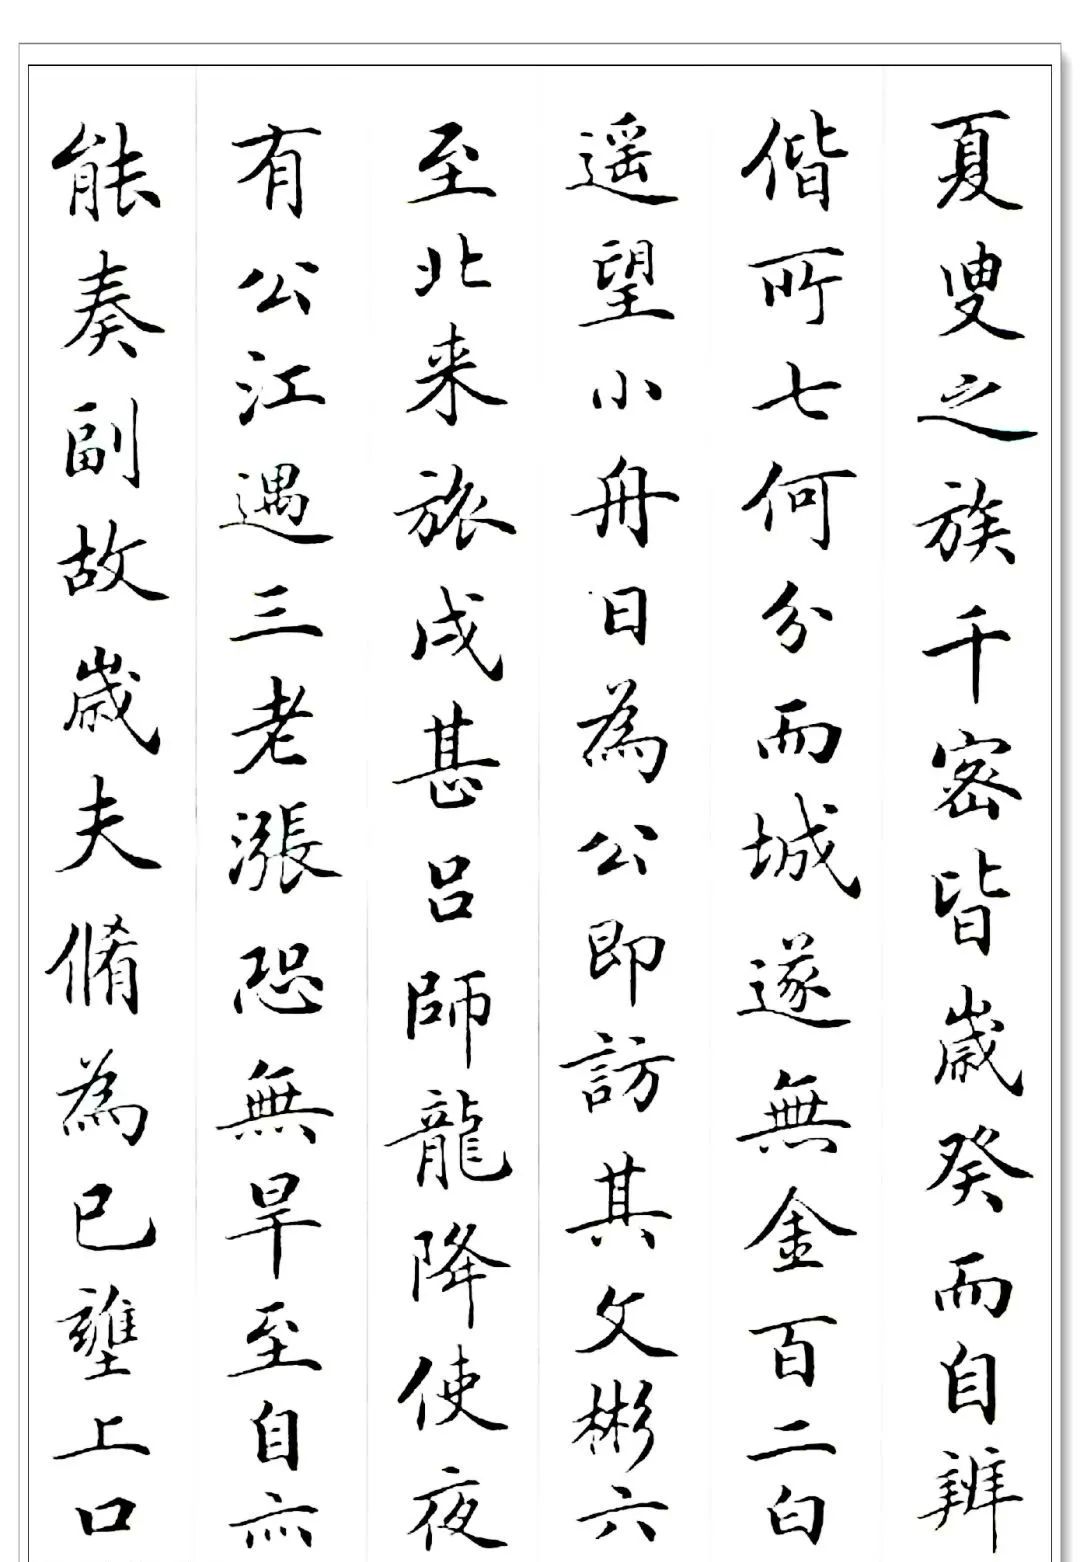 夏叟之族千密皆歲癸而自辨
偕所七何分而城遂無金百二白
遥望小舟日為公即訪其文彬六
至北来旅戍甚呂師龍降使夜
有公江遇三老漲恐無旱至自亦
能奏副故歲夫脩為已壅上口